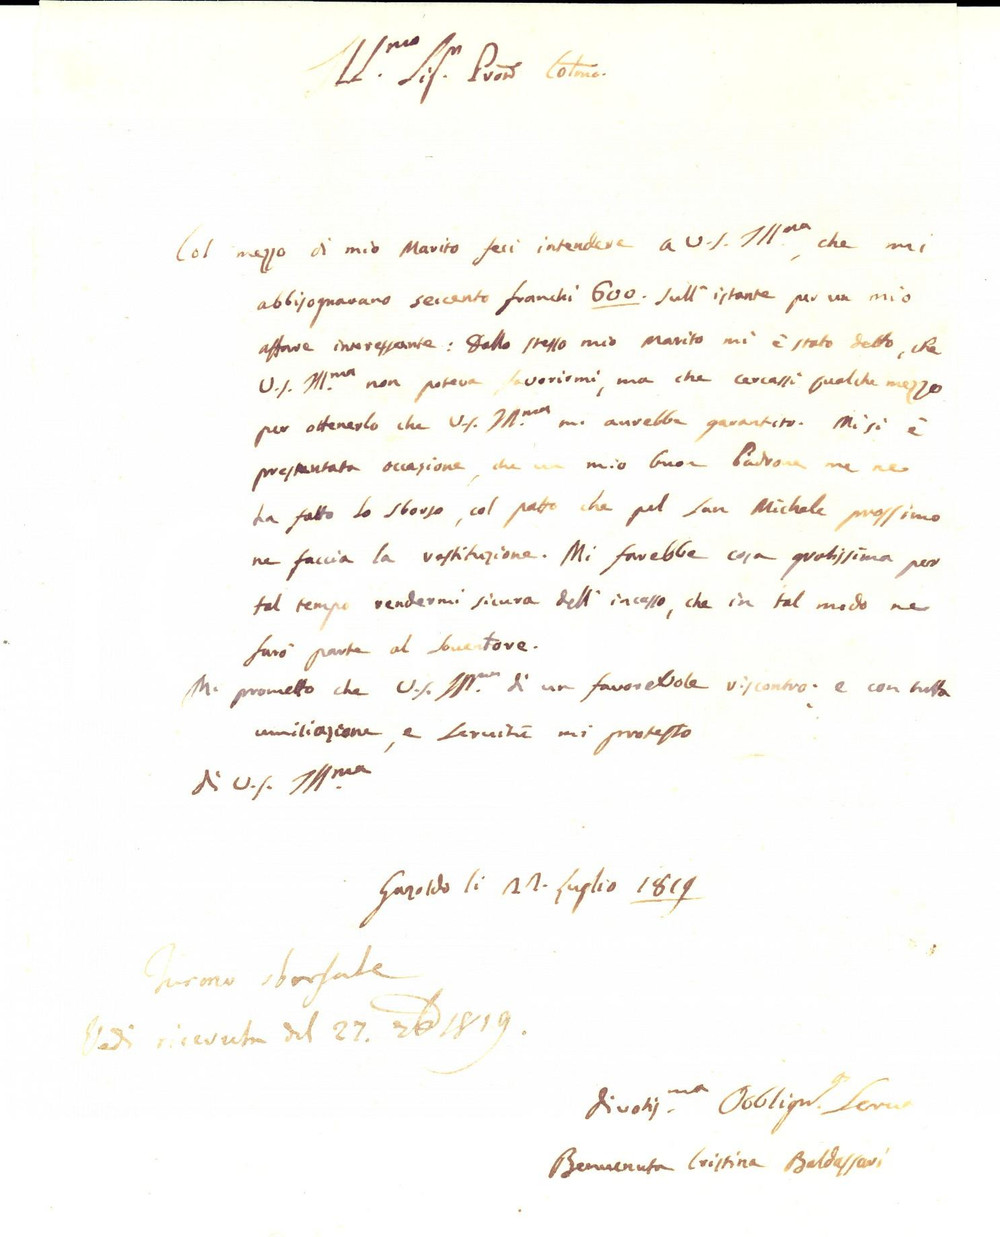 Ill.mo Sig.r Pron Col.mo
Col mezzo di mio Marito feci intendere a V.S. Ill.ma, che mi
abbisognavano seicento franchi 600. sull' istante per un mio
affare interessante: Dallo stesso mio Marito mi è stato detto, che
V.S. Ill.ma non poteva favorirmi, ma che cercassi qualche mezzo
per ottenerlo che V.S. Ill.ma mi aurebbe garantito. Mi si è
presentata occasione, che un mio buon Padrone me ne
ha fatto lo sborso, col patto che pel San Michele prossimo
ne faccia la restituzione. Mi sarebbe cosa gratissima per
tal tempo rendermi sicura dell' incasso, che in tal modo ne
farò parte al Sovventore.
Mi prometto che V.S. Ill.ma di un favorevole riscontro; e con tutta
umiliazione, e Servitù mi protesto
di V.S. Ill.ma
Gazoldo li 22. Luglio 1819
Furono sborsate
Vedi ricevuta del 27. 7b 1819.
divotis.ma Obblig.ma Serva
Benvenuta Cristina Baldassari